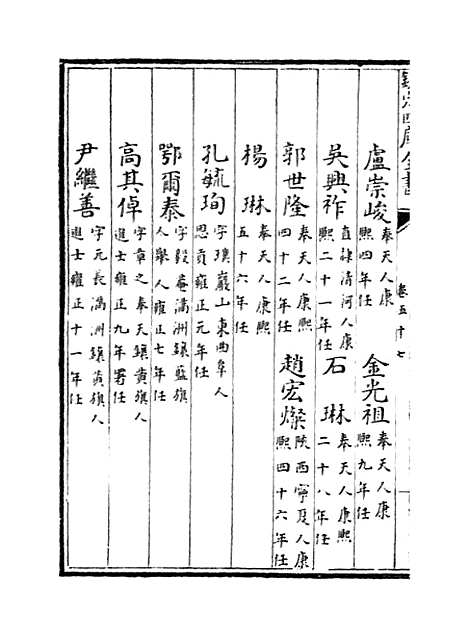 欽定四庫全書
卷五十七
盧崇峻 奉天人康熙四年任 金光祖 奉天人康熙九年任
吳興祚 直隸清河人康熙二十一年任 石琳 奉天人康熙二十八年任
郭世隆 奉天人康熙四十二年任 趙宏燦 陝西寧夏人康熙四十六年任
楊琳 奉天人康熙五十六年任
孔毓珣 字璞巖山東曲阜人恩貢雍正元年任
鄂爾泰 字毅菴滿洲鑲藍旗人舉人雍正七年任
高其倬 字章之奉天鑲黃旗人進士雍正九年署任
尹繼善 字元長滿洲鑲黃旗人進士雍正十一年任